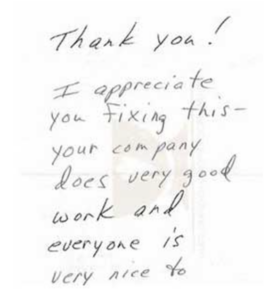 Thank you!
I appreciate
you fixing this-
your company
does very good
work and
everyone is
very nice to